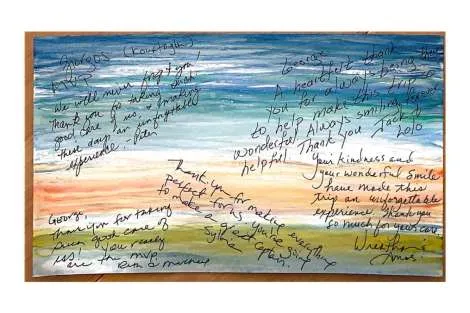 Giorgos (
MVP
We will never forget you!
Thank you for taking such
good care of us, & making
these days an unforgettable
experience -
George
A heartfelt thank
you for always being there
to help make this trip so
wonderful. Always smiling,
helpful Thank you Jack &
Lolo
Your kindness and
your wonderful smile
have made this
trip an unforgettable
experience. Thank you
so much for your care.
Thank you for making everything
perfect for us. You're going
to make a great captain.
Sylvia
George,
Thank you for taking
such good care of
us! You really
are the MVP
Ruth &